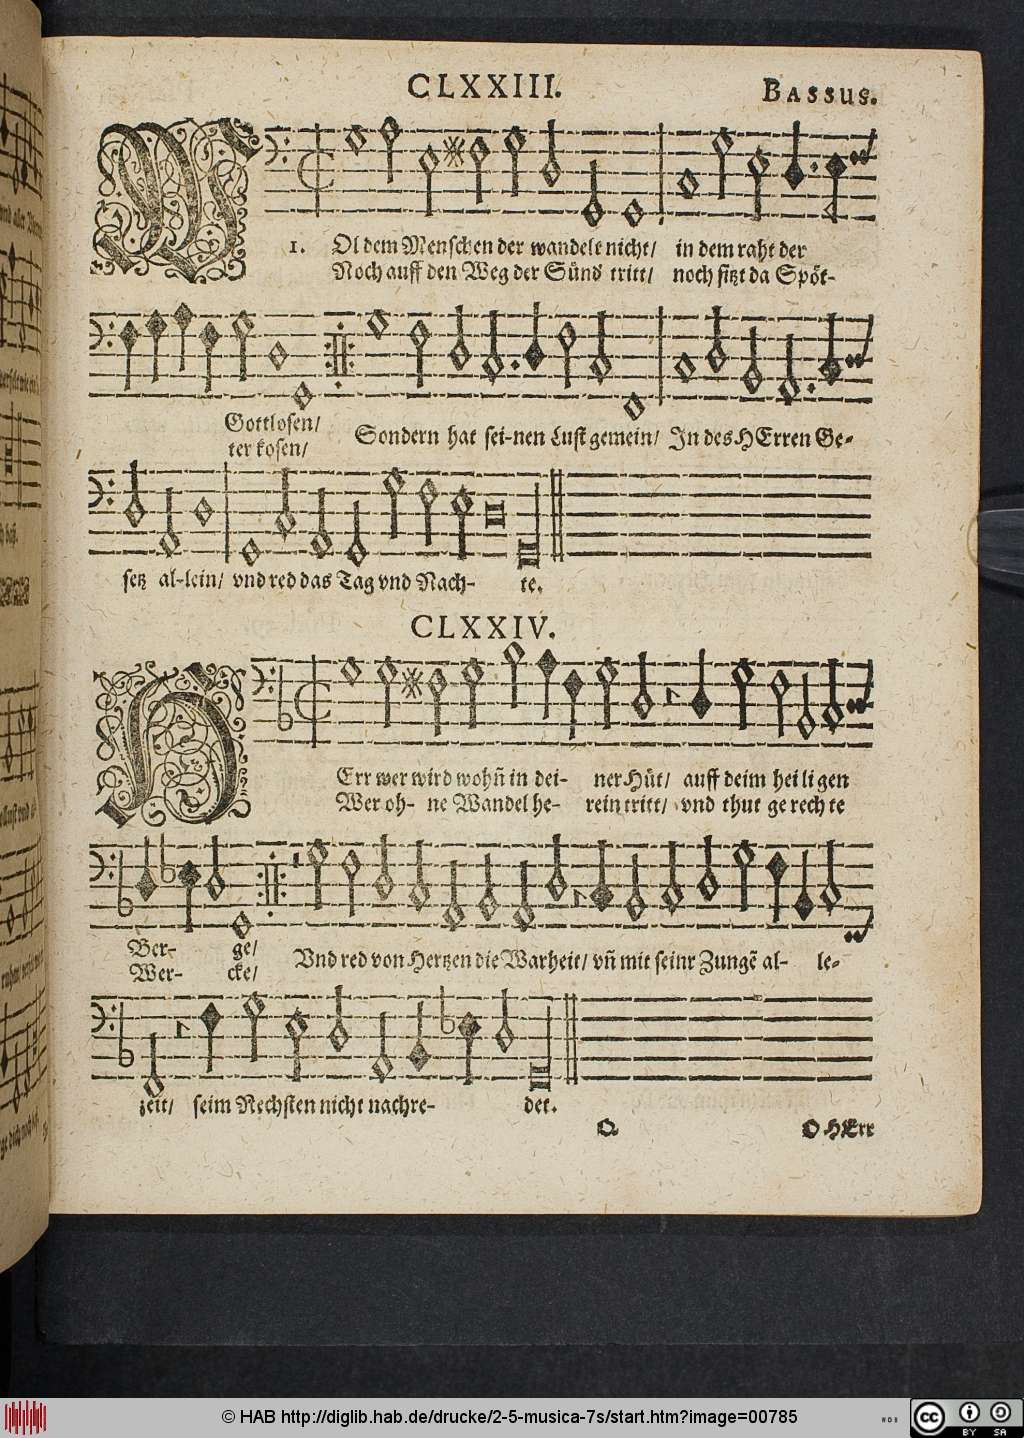 CLXXIII.
BASSUS.
WOl dem Menschen der wandelt nicht/ in dem raht der
1.
Noch auff den Weg der Sünd tritt/ noch sitzt da Spöt-
Gottlosen/
ter kosen/
Sondern hat sei-nen Lust gemein/ In des HErren Ge-
setz al-lein/ vnd red das Tag vnd Nach- te.
CLXXIV.
HErr wer wird wohñ in dei- ner Hüt/ auff deim hei li gen
Wer oh- ne Wandel he- rein tritt/ vnd thut ge rech te
Ber- ge/
Wer- cke/
Vnd red von Hertzen die Warheit/ vñ mit seinr Zungẽ al- le-
zeit/ seim Nechsten nicht nachre- det.
Q
O HErr
© HAB http://diglib.hab.de/drucke/2-5-musica-7s/start.htm?image=00785
WDB
cc
BY SA